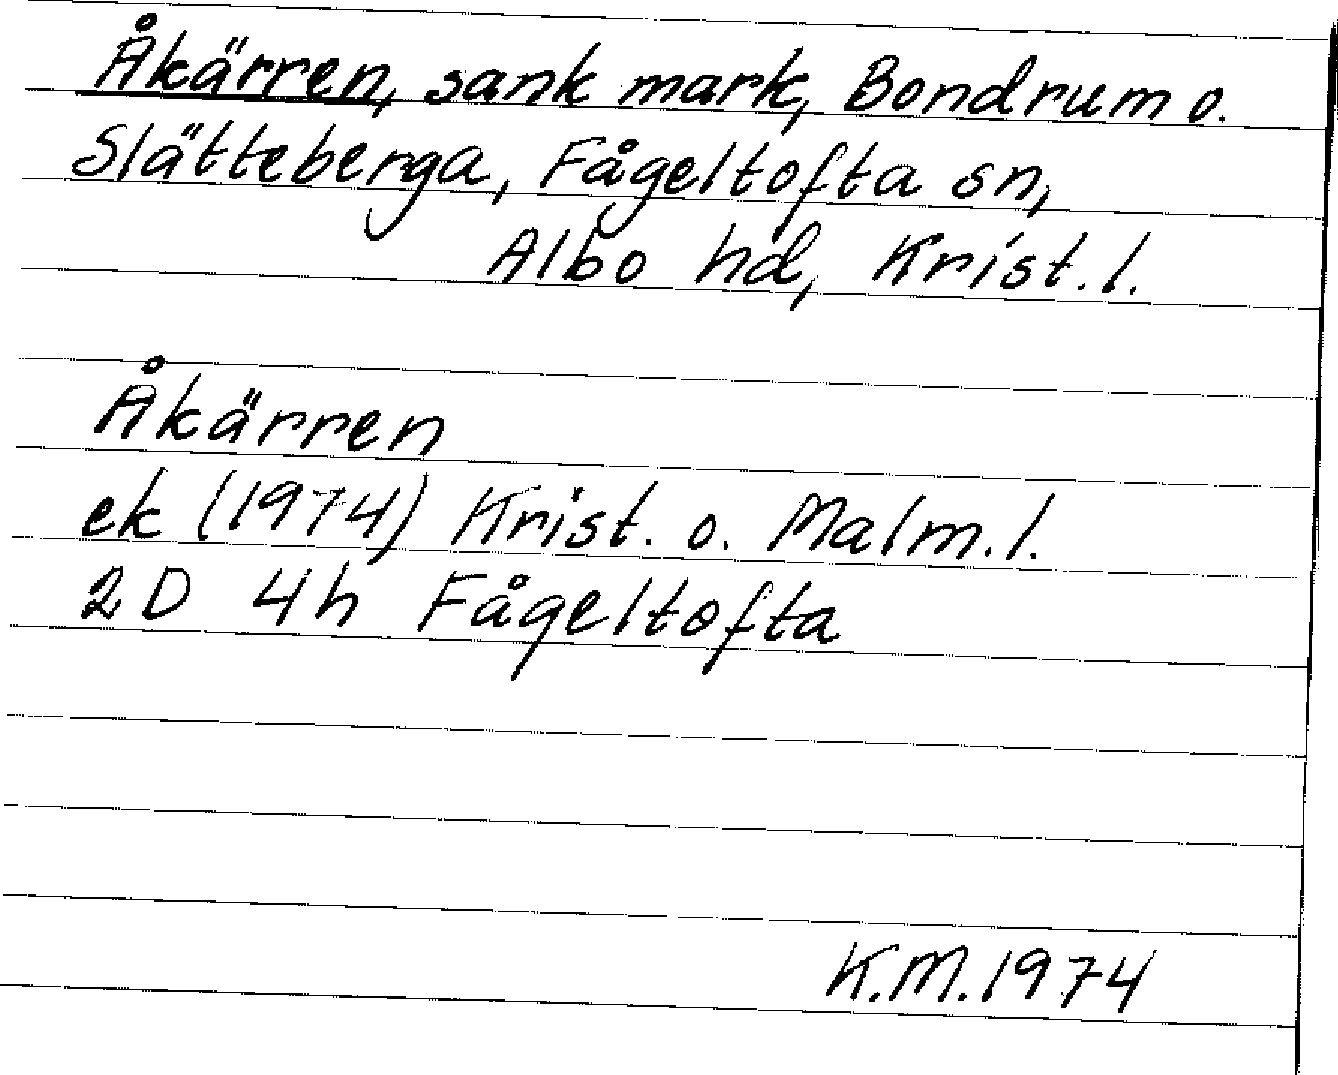 Åkärren, sank mark, Bondrum o.
Slätteberga, Fågeltofta sn,
Albo hd, Krist. l.
Åkärren
ek (1974) Krist. o. Malm. l.
2D 4h Fågeltofta
K.M. 1974